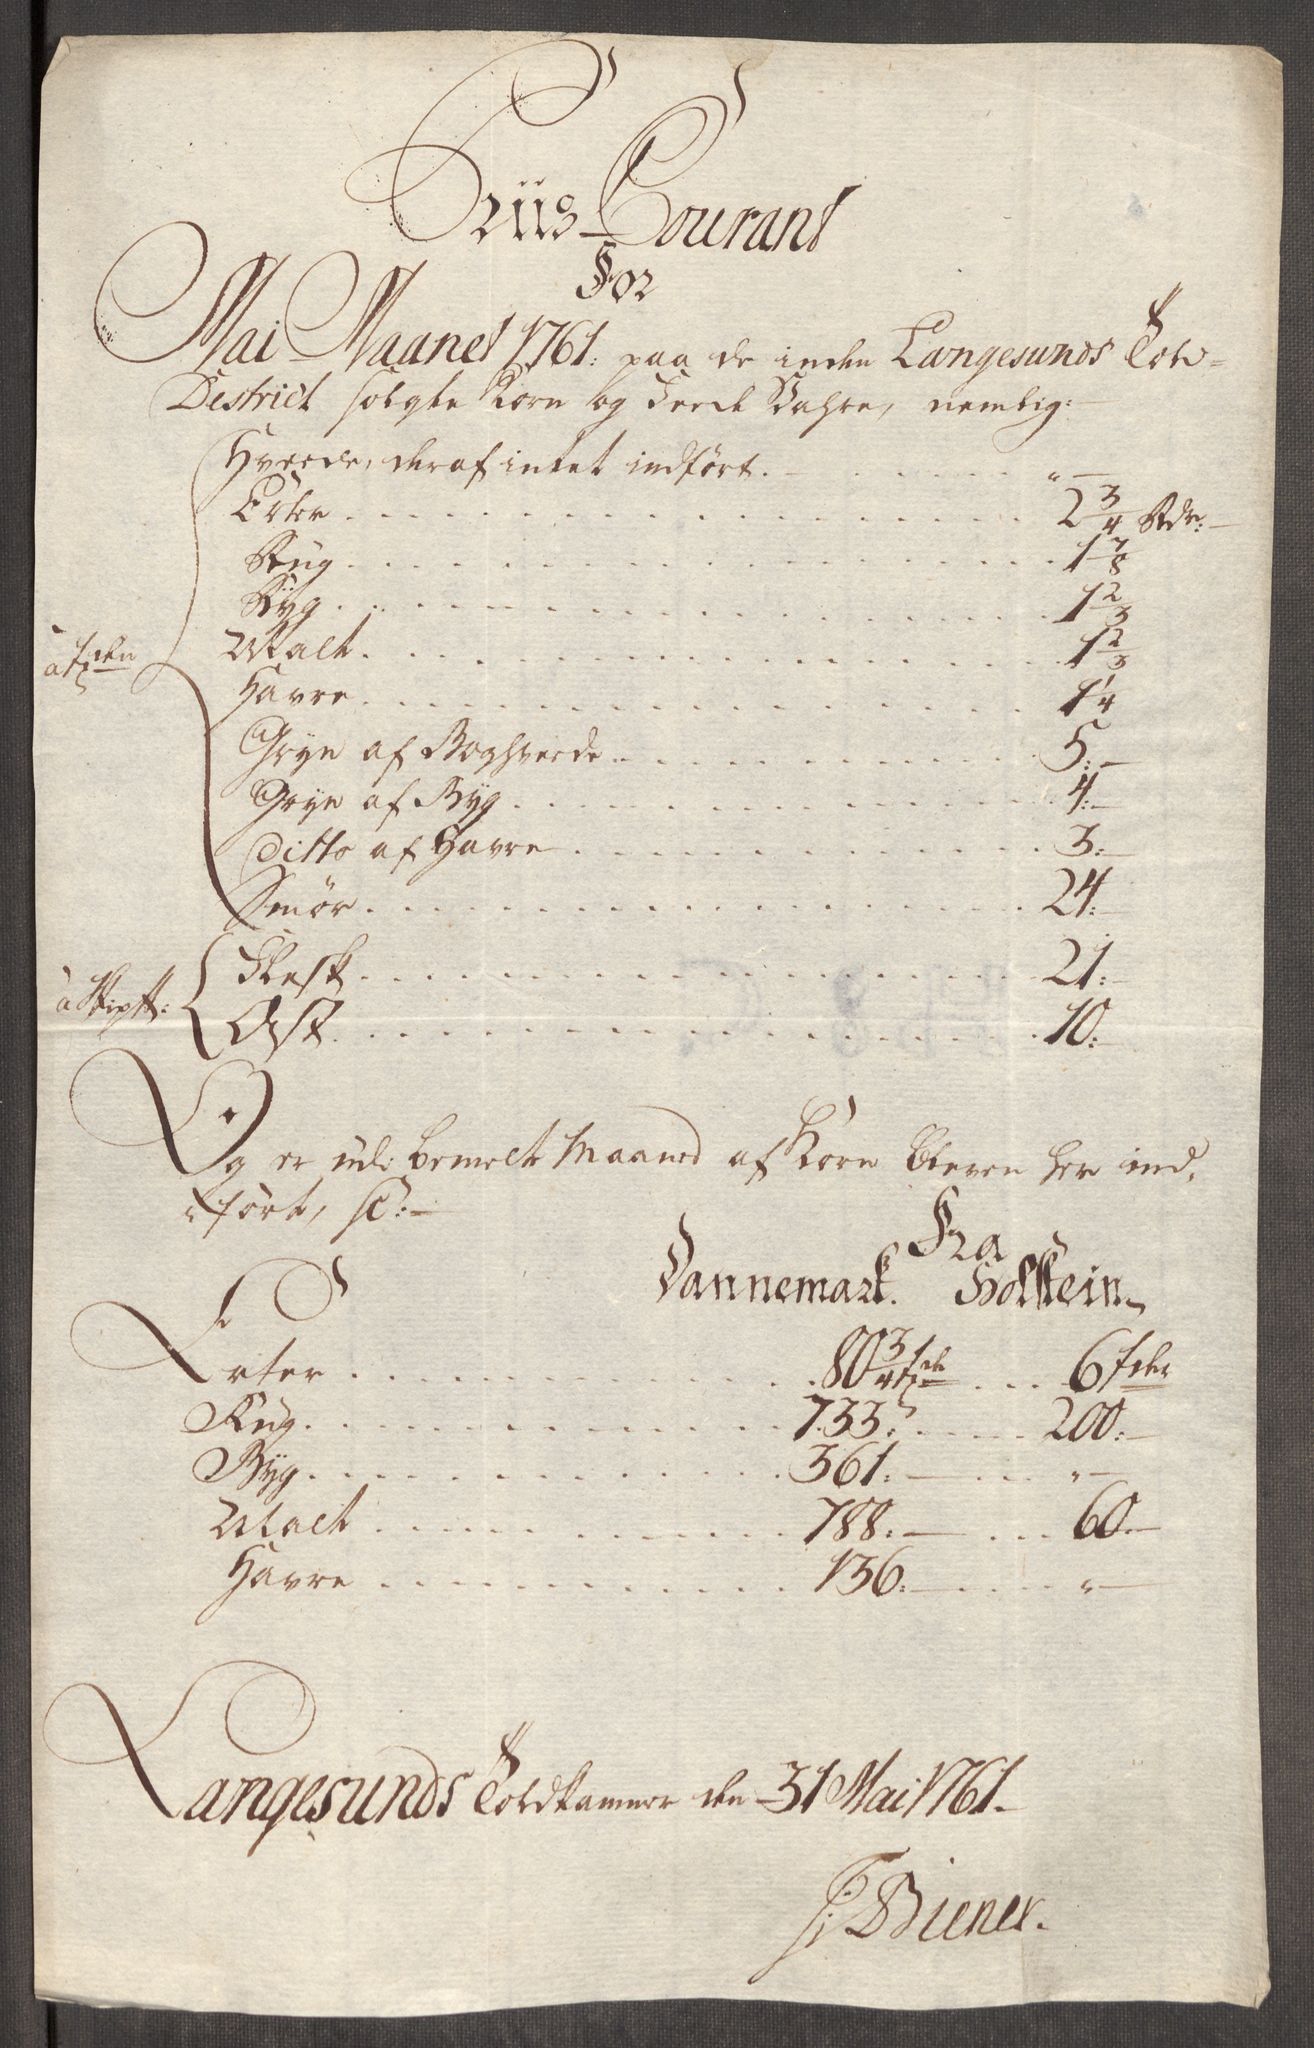 Priis-Courant
For
Mai Maanet 1761. paa de inden Langesunds Told-
District solgte Korn og Feede Vahre, nemlig:
Hveede, deraf intet indført. „
Erter 2 3/4 Rdr:
Rug 1 7/8
Byg 1 2/3
Malt 1 2/3
à Tønden
Havre 1 1/4
Gryn af Boghveede 5:
Gryn af Byg 4:
Ditto af Havre 3:
Smør 24:
Flesk 21:
à Skip℔:
Ost 10:
Og er udi bemelte Maaned af Korn bleven her ind-
ført, sc:
Fra
Dannemark. Holstein
Erter 80 3/4 Tde 6 Tder
Rug 733: 200:
Byg 361: „
Malt 788: 60
Havre 136: „
Langesunds Toldkammer den 31 Mai 1761.
Biener.